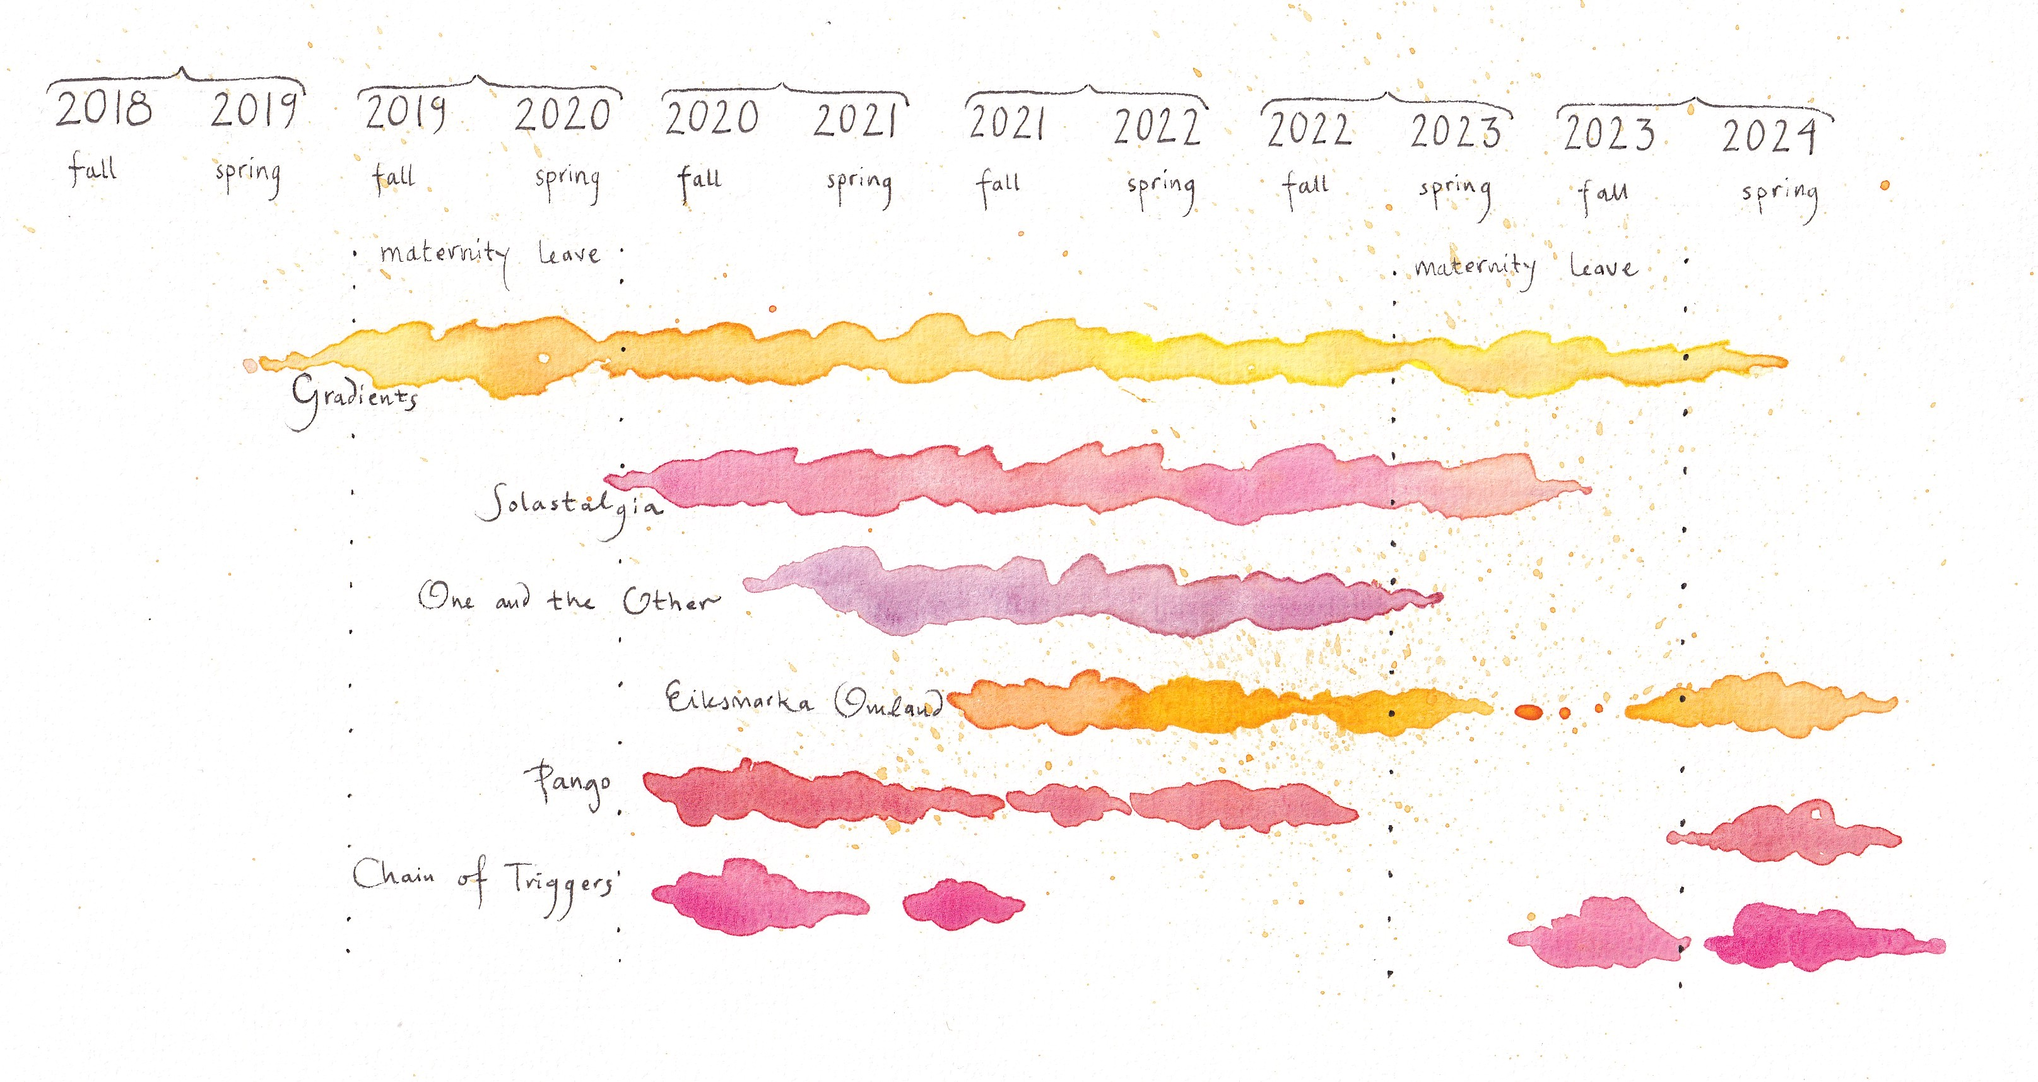 2018 2019 2019 2020 2020 2021 2021 2022 2022 2023 2023 2024
fall spring fall spring fall spring fall spring fall spring fall spring
maternity leave maternity leave
Gradients
Solastalgia
One and the Other
Eiksmarka Omland
Pango
Chain of Triggers